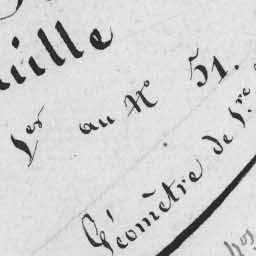 uille
1er au No 51.
Géomètre de 1re
nos